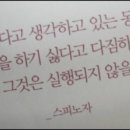 다고 생각하고 있는 동
을 하기 싫다고 다짐하
그것은 실행되지 않을
_스피노자